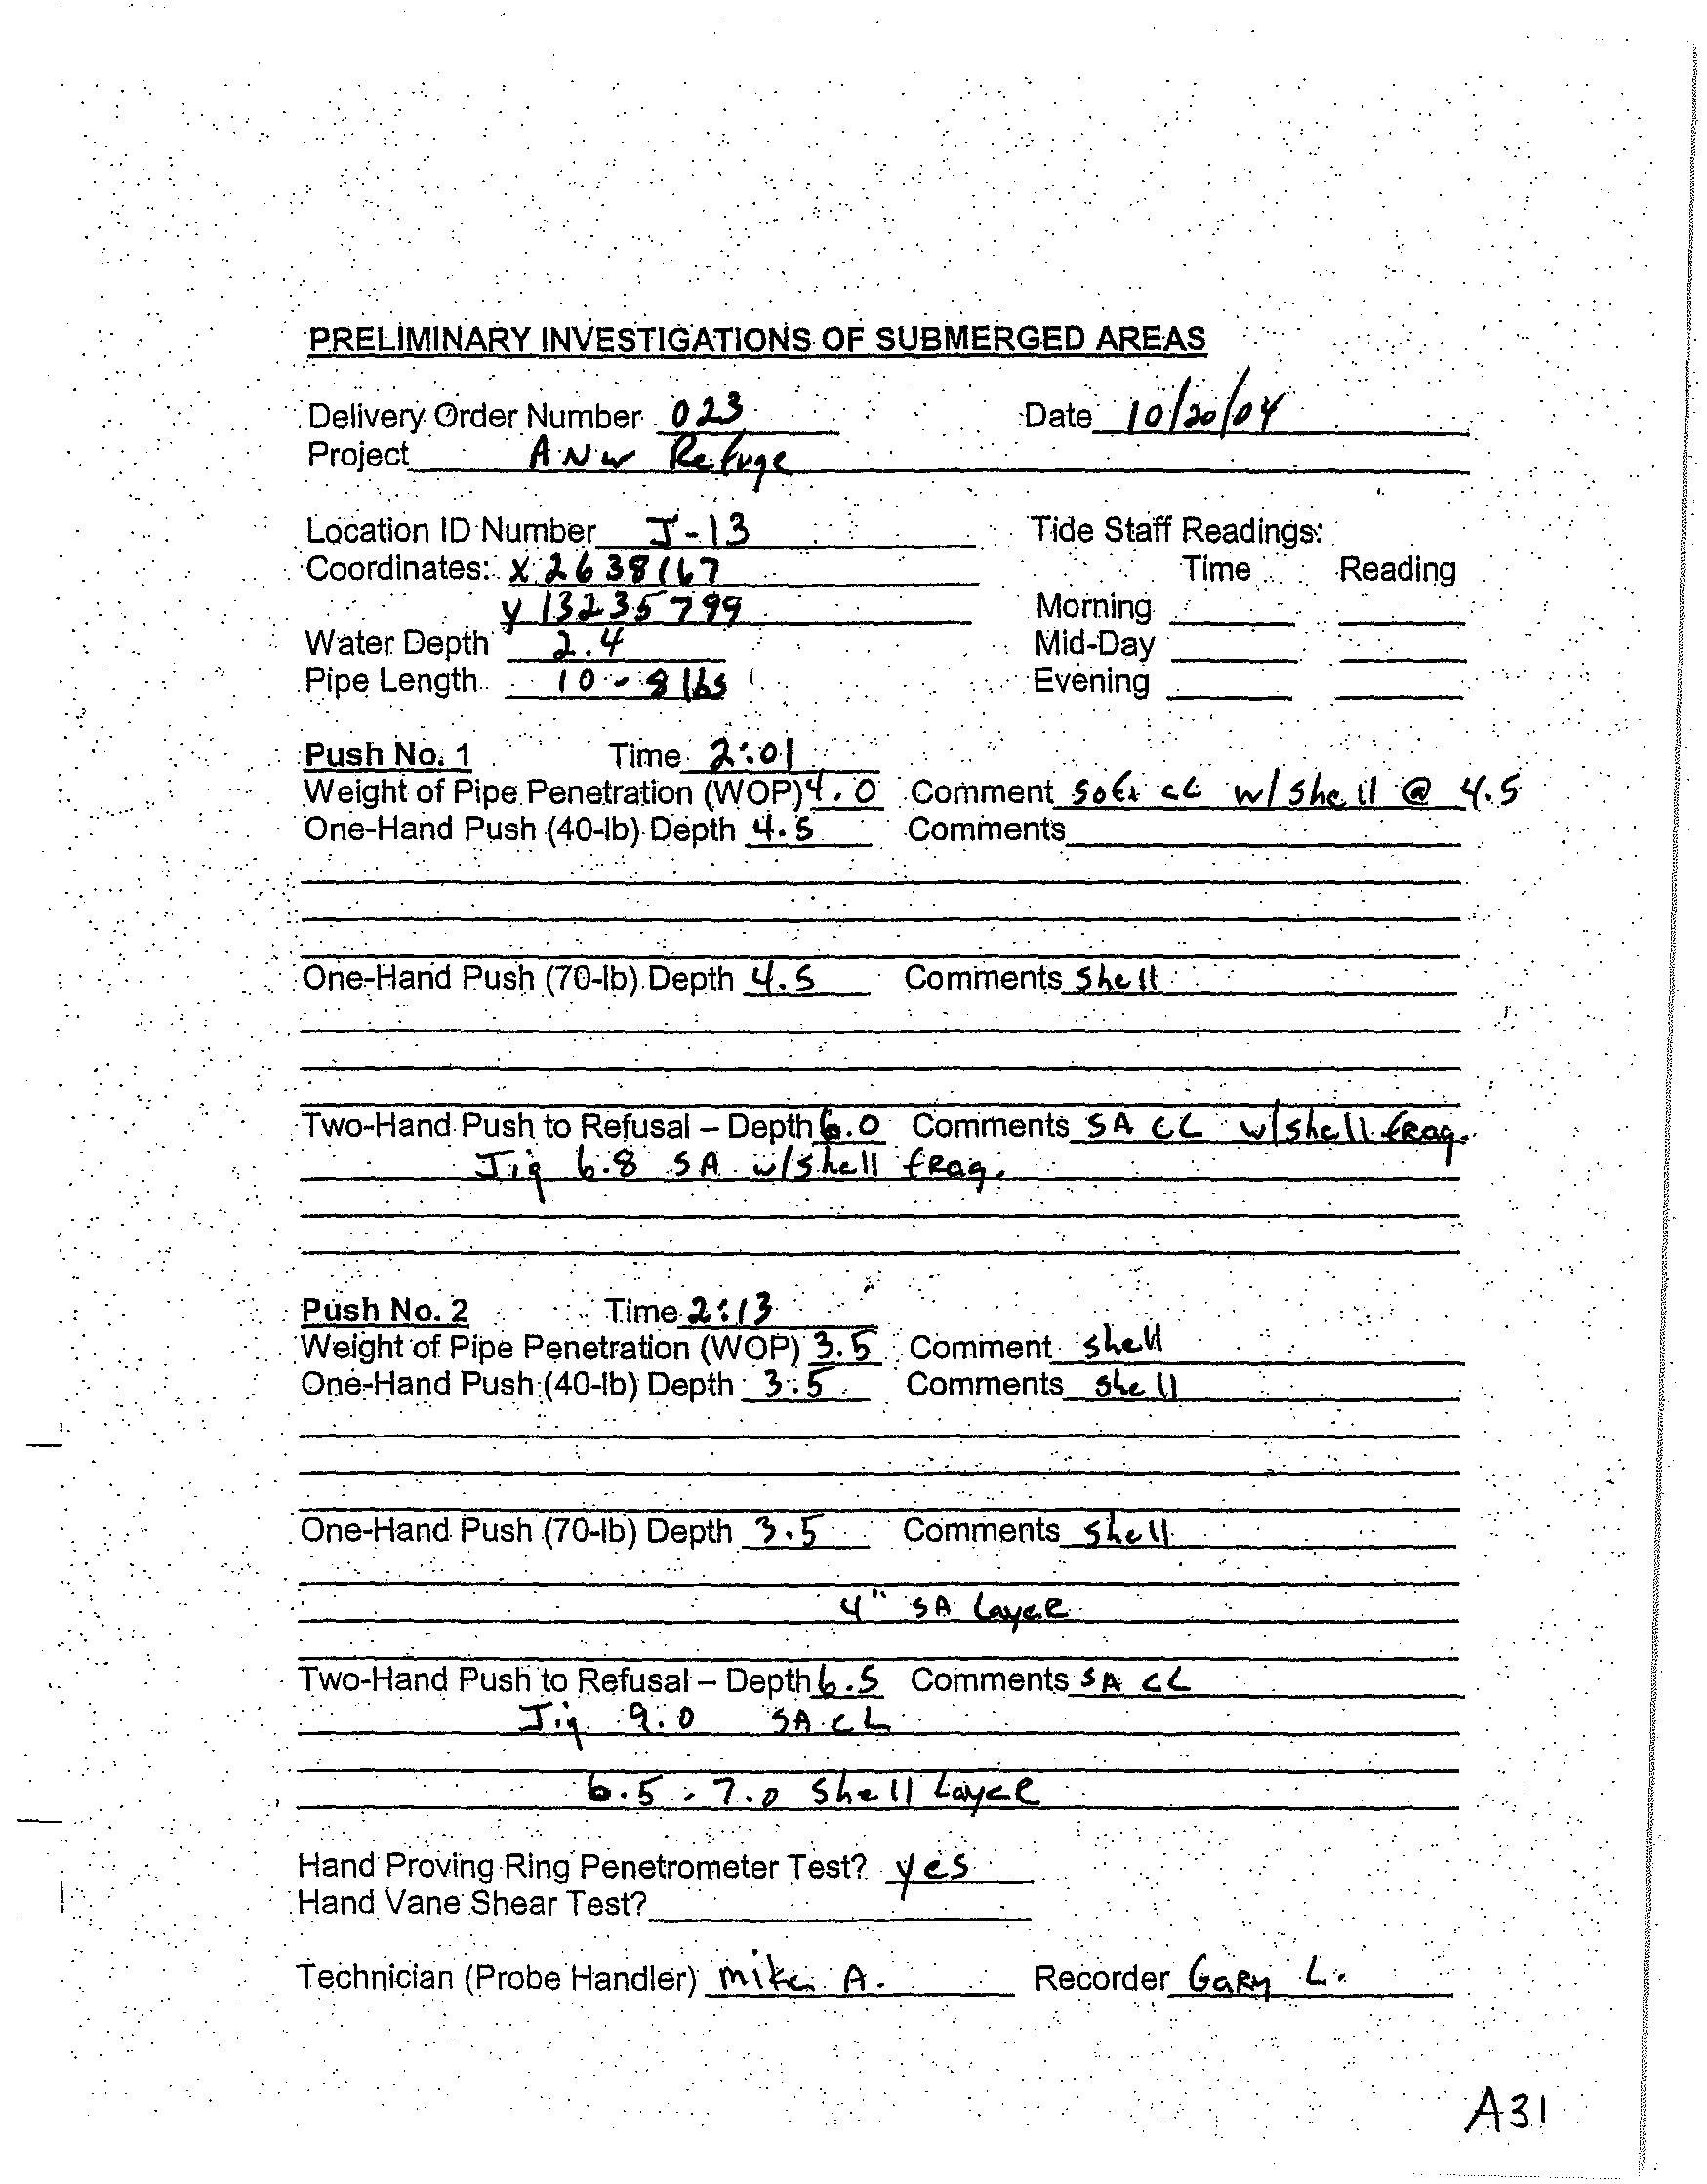 PRELIMINARY INVESTIGATIONS OF SUBMERGED AREAS
Delivery Order Number 023 Date 10/20/04
Project ANW Refuge
Location ID Number J-13 Tide Staff Readings:
Coordinates: X 2638167 Time Reading
y 13235799 Morning
Water Depth 2.4 Mid-Day
Pipe Length 10 - 8 lbs Evening
Push No. 1 Time 2:01
Weight of Pipe Penetration (WOP) 4.0 Comment Soft CL w/ Shell @ 4.5
One-Hand Push (40-lb) Depth 4.5 Comments
One-Hand Push (70-lb) Depth 4.5 Comments Shell
Two-Hand Push to Refusal – Depth 6.0 Comments SA CL w/shell frag.
Jig 6.8 SA w/shell frag.
Push No. 2 Time 2:13
Weight of Pipe Penetration (WOP) 3.5 Comment shell
One-Hand Push (40-lb) Depth 3.5 Comments shell
One-Hand Push (70-lb) Depth 3.5 Comments shell
4" SA Layer
Two-Hand Push to Refusal – Depth 6.5 Comments SA CL
Jig 9.0 SA CL
6.5 - 7.0 Shell Layer
Hand Proving Ring Penetrometer Test? yes
Hand Vane Shear Test?
Technician (Probe Handler) Mike A. Recorder Gary L.
A31